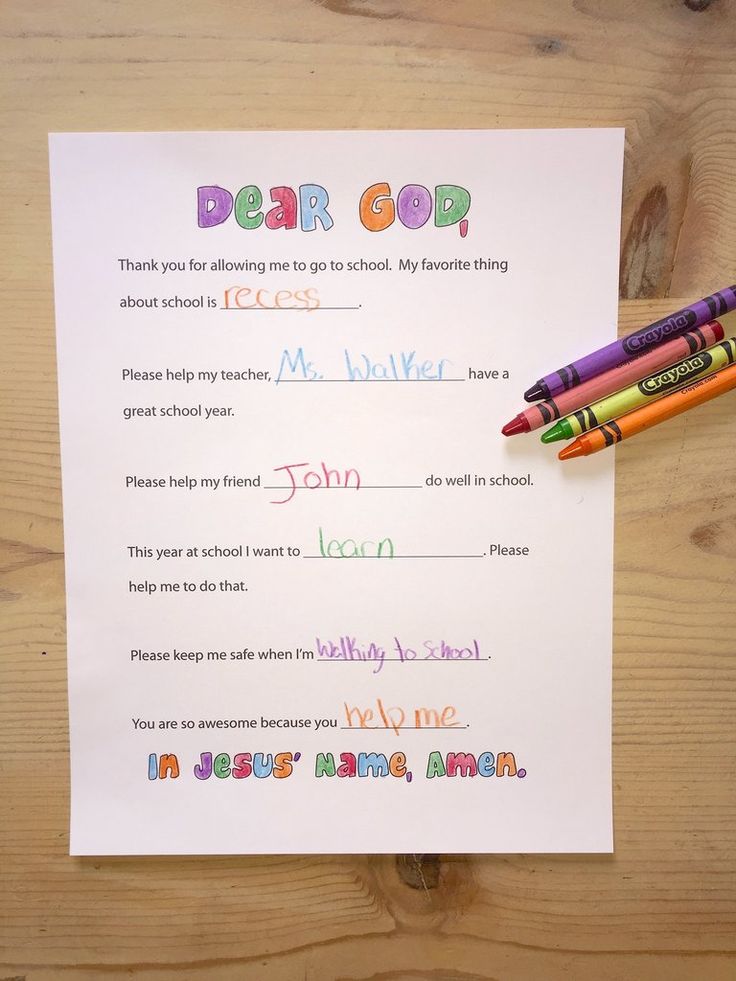 DEAR GOD,
Thank you for allowing me to go to school. My favorite thing
about school is recess.
Please help my teacher, Ms. Walker have a
great school year.
Please help my friend John do well in school.
This year at school I want to learn. Please
help me to do that.
Please keep me safe when I'm Walking to School.
You are so awesome because you help me.
In Jesus' Name, Amen.
Crayola
Crayola
Crayola.com